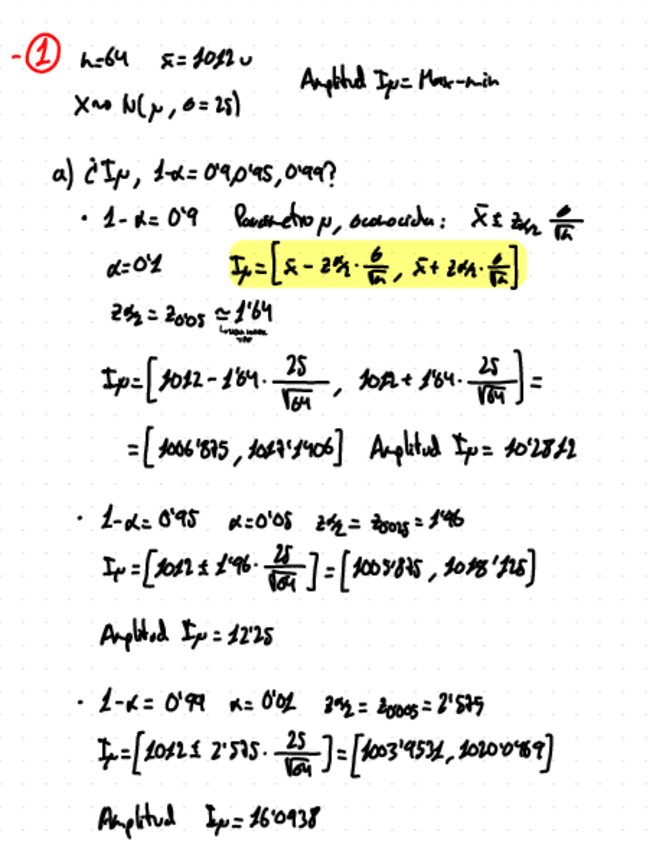 -① n=64 x̄=1012 u
Amplitud Iμ = Max-min
X~N(μ, σ=25)
a) ¿Iμ, 1-α=0'9,0'95,0'99?
· 1-α=0'9 Parámetro μ, σ conocida: x̄ ± zα/2 σ/√n
α=0'1 Iμ=[x̄ - zα/2 · σ/√n, x̄ + zα/2 · σ/√n]
zα/2 = z0'05 ≃ 1'64
Iμ=[1012 - 1'64 · 25/√64, 1012 + 1'64 · 25/√64] =
= [1006'875, 1017'1406] Amplitud Iμ = 10'2812
· 1-α= 0'95 α=0'05 zα/2 = z0'025 = 1'96
Iμ=[1012 ± 1'96 · 25/√64] = [1005'875, 1018'125]
Amplitud Iμ = 12'25
· 1-α= 0'99 α= 0'01 zα/2 = z0'005 = 2'575
Iμ=[1012 ± 2'575 · 25/√64] = [1003'9531, 1020'0469]
Amplitud Iμ = 16'0938